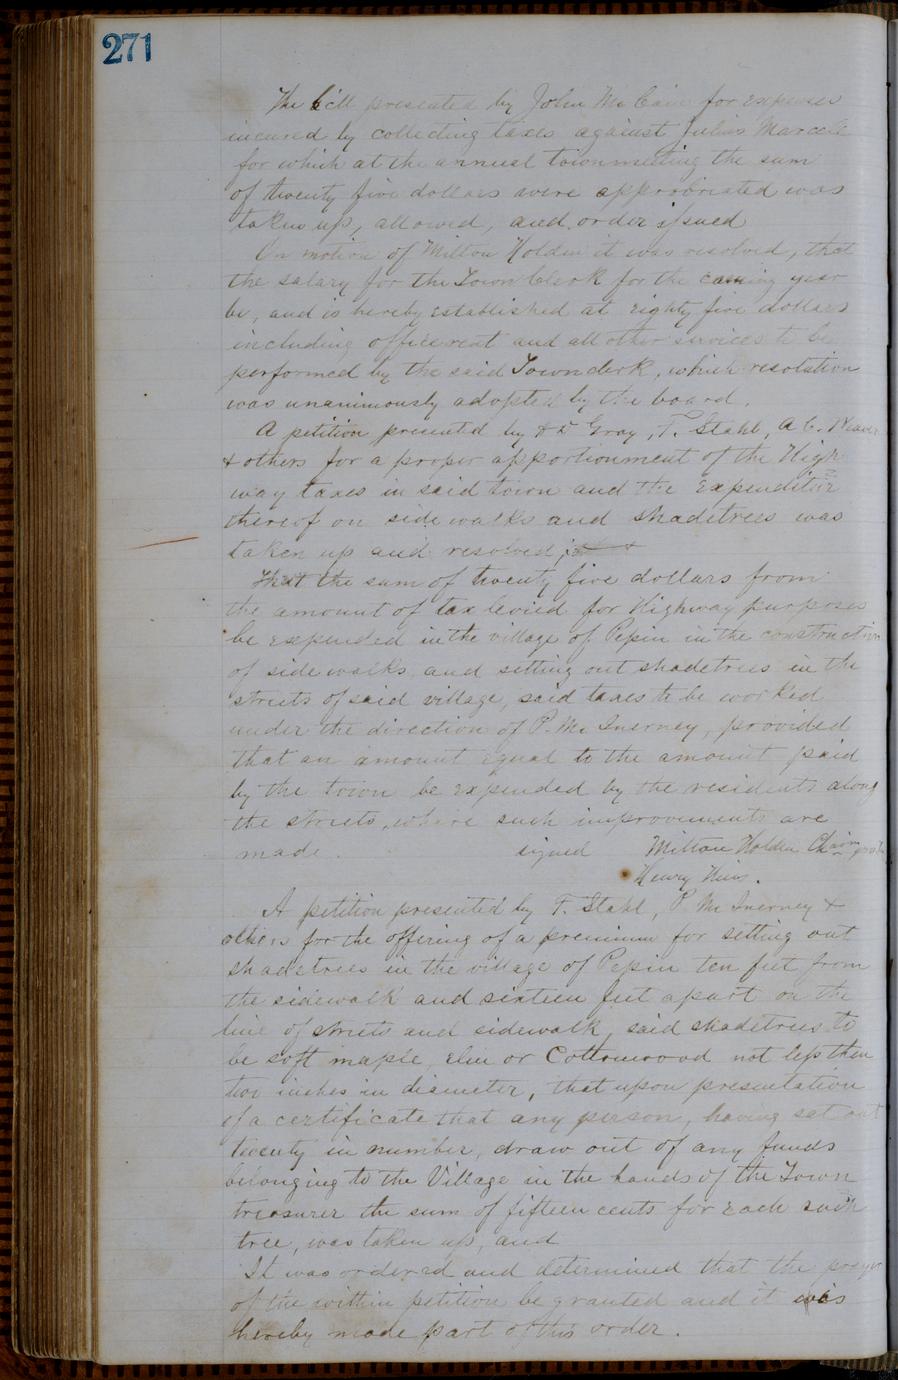 271
The bill presented by John McCain for expenses
incured by collecting taxes against Julius Marcelle
for which at the annual townmeeting the sum
of twenty five dollars were appropriated was
taken up, allowed, and order issued
On motion of Milton Holden it was resolved, that
the salary for the Town Clerk for the coming year
be, and is hereby established at eighty five dollars
including office rent and all other services to be
performed by the said Town clerk, which resolution
was unanimously adopted by the board.
A petition presented by Gray, F. Stahl, A C. Weaver
& others for a proper apportionment of the High
way taxes in said town and the expenditur
thereof on side walks and shadetrees was
taken up and resolved,
That the sum of twenty five dollars from
the amount of tax levied for Highway purposes
be expended in the village of Pepin in the construction
of side walks and setting out shadetrees in the
streets of said village, said taxes to be worked
under the direction of P. Mc Inerney, provided
that an amount equal to the amount paid
by the town be expended by the residents along
the streets, where such improvements are
made. signed Milton Holden Chairm
Henry
A petition presented by F. Stahl, P. Mc Inerney &
others for the offering of a premium for setting out
shadetrees in the village of Pepin ten feet from
the sidewalk and sixteen feet apart on the
line of streets and sidewalk, said shadetrees to
be soft maple, elm or Cottonwood not less than
two inches in diameter, that upon presentation
of a certificate that any person, having set out
twenty in number, draw out of any funds
belonging to the Village in the hands of the Town
treasurer the sum of fifteen cents for each such
tree, was taken up, and
It was ordered and determined that the prayr
of the within petition be granted and it is
hereby made part of this order.